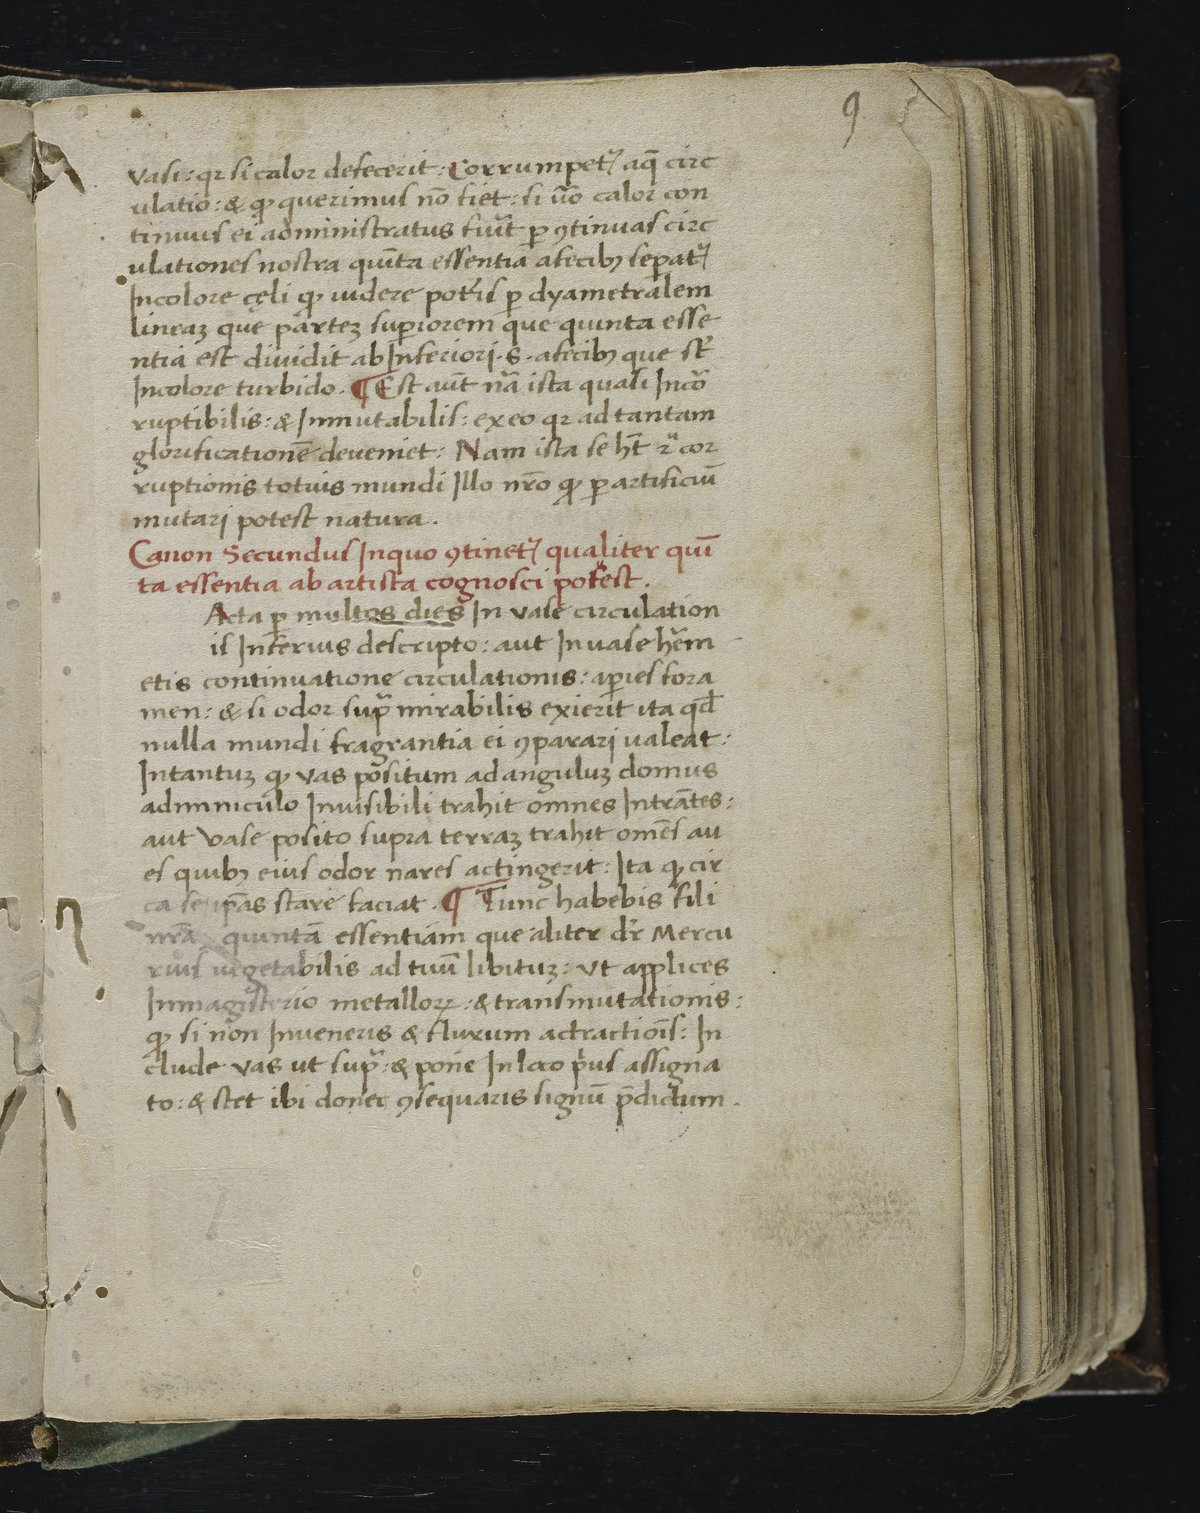 9
vasi: qr si calor defecerit: Corrumpetꝭ aq̄ circ
ulatio: & qꝫ querimus nō fiet: si ūo calor con
tinuus ei administratus fūit ꝑ ꝯtinuas circ
ulationes nostra quīta essentia afecibꝫ seꝑatꝭ
Incolore cęli qꝫ uidere potis ꝑ dyametralem
lineaꝫ que partez suꝑiorem que quinta esse
ntia est diuidit ab Inferiori .s. afecibꝫ que st̄
Incolore turbido. ¶ Est aūt nā ista quasi Incor
ruptibilis: & Inmutabilis: ex eo qr ad tantam
glorificationē deveniet: Nam ista se hēt cor
ruptionis totius mundi Illo nr̄o qꝫ ꝑ artificiū
mutari potest natura.
Canon Secundus Inquo ꝯtinetꝭ qualiter quī
ta essentia ab artista cognosci poterit.
Acta ꝑ multos dies In vase circulation
is Inferius descripto: aut Inuase herm
etis continuatione circulationis: aꝑies fora
men: & si odor supra mirabilis exierit ita qđ
nulla mundi fragrantia ei ꝯparari ualeat:
Intantuꝫ qꝫ vas positum ad anguluꝫ domus
adminiculo Inuisibili trahit omnes Intrātes:
aut vase posito supra terraꝫ trahit omēs au
es quibꝫ eius odor nares actingerit: Ita qꝫ cir
ca se ipas stare faciat. ¶ Tunc habebis fili
nrā quintā essentiam que aliter dr̄ Mercu
rius uegetabilis ad tuū libituꝫ: vt applices
Inmagisterio metalloꝝ: & transmutationis:
qꝫ si non Inueneris & fluxum actractiōis: In
clude vas ut supra: & pone In loco prius assigna
to: & stet ibi donec ꝯsequaris signū p̄dictum.